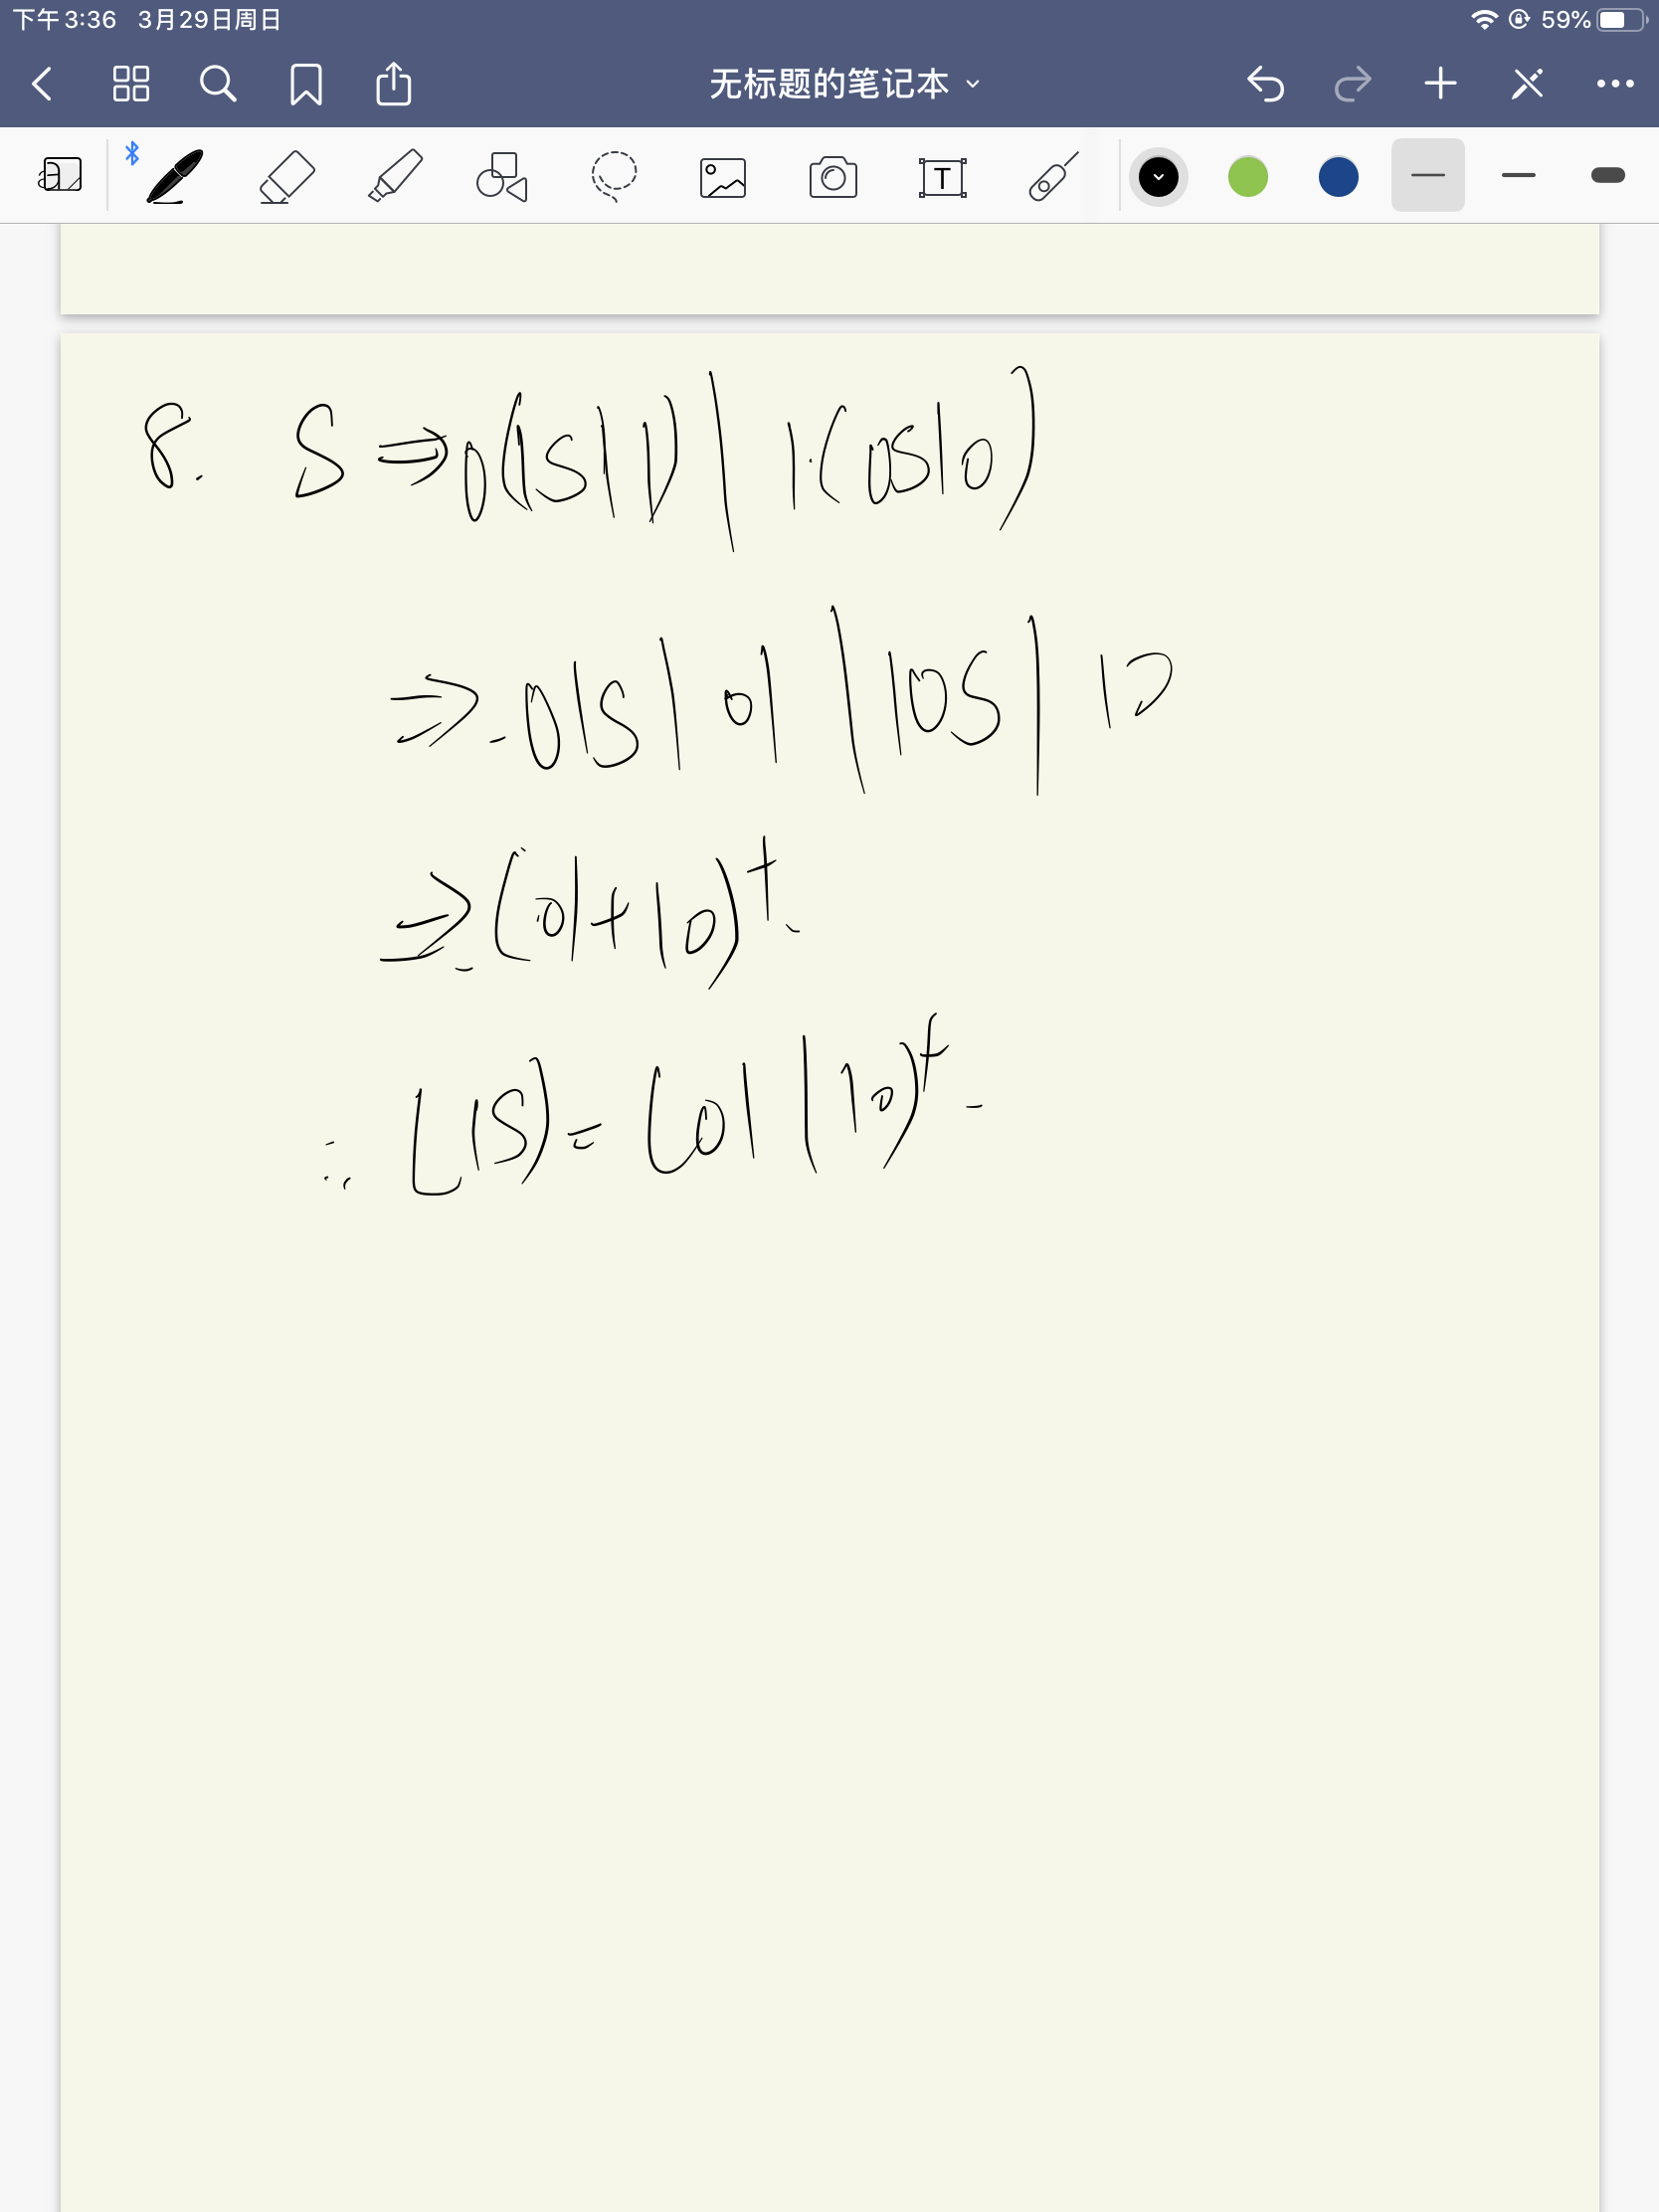 下午3:36 3月29日周日 59%
无标题的笔记本
T
8. S ⇒ 0(1S|1) | 1·(0S|0)
⇒ 01S | 01 | 10S | 10
⇒ (01+10)⁺.
∴ L(S) = (01|10)⁺.